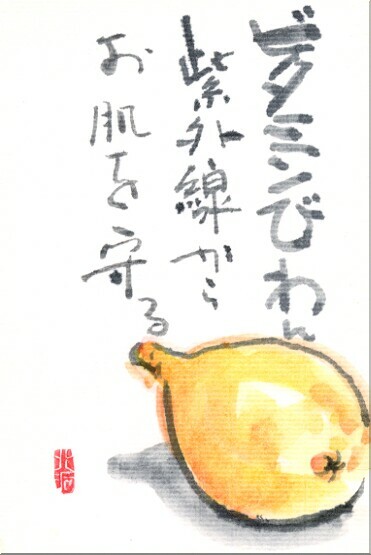 ビタミンびわん
紫外線から
お肌を守る